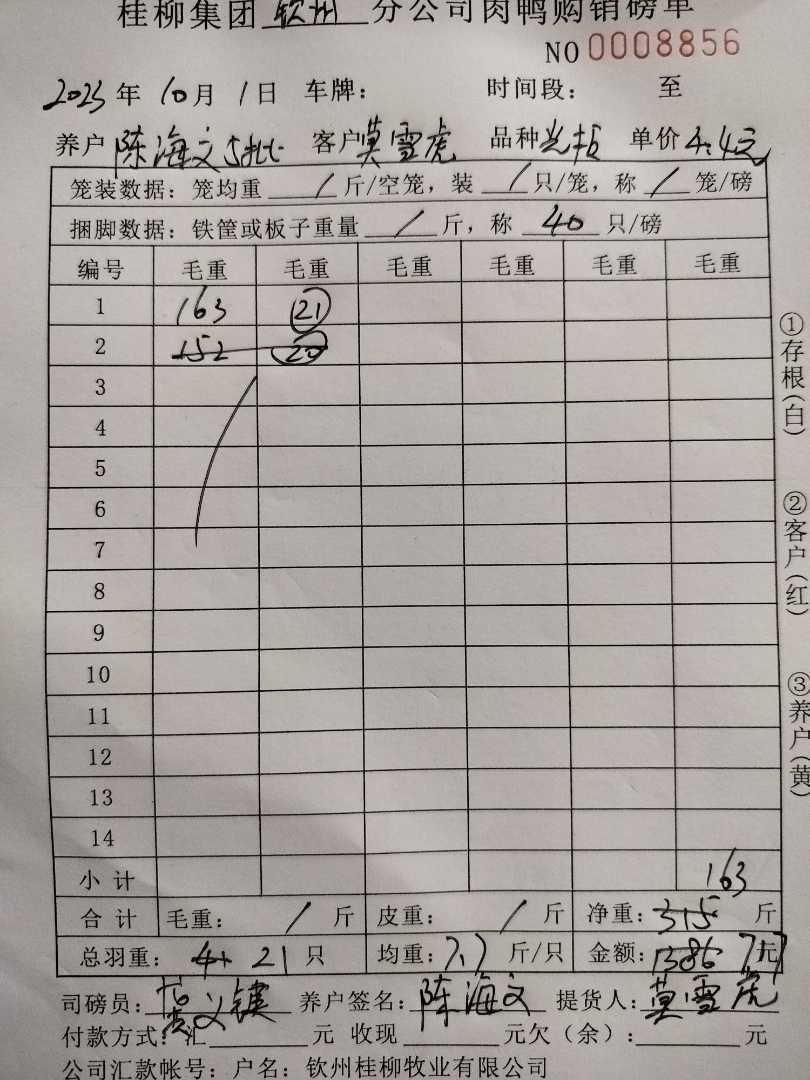 桂柳集团 钦州 分公司肉鸭购销磅单
NO 0008856
2023 年 10 月 1 日 车牌: 时间段: 至
养户 陈海文5批 客户 莫雪虎 品种 光板 单价 4.4元
笼装数据: 笼均重 / 斤/空笼, 装 / 只/笼, 称 / 笼/磅
捆脚数据: 铁筐或板子重量 / 斤, 称 40 只/磅
编号 毛重 毛重 毛重 毛重 毛重 毛重
1 163 21
2 152 20
3
4
5
6
7
8
9
10
11
12
13
14
小计 163
合计 毛重: / 斤 皮重: / 斤 净重: 315 斤
总羽重: 41 21 只 均重: 7.7 斤/只 金额: 1386 717 元
司磅员: 义键 养户签名: 陈海文 提货人: 莫雪虎
付款方式: 汇 元 收现 元欠(余): 元
公司汇款帐号: 户名: 钦州桂柳牧业有限公司
①存根(白)
②客户(红)
③养户(黄)